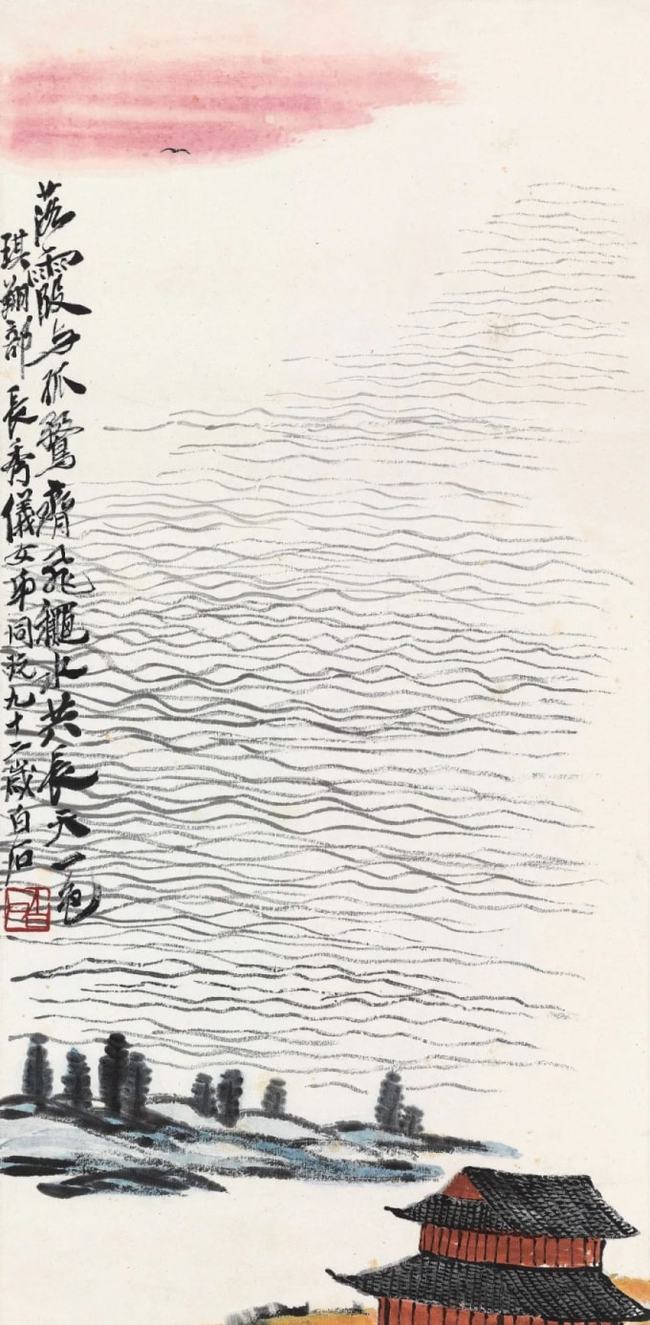 落霞与孤鶩齊飛龝水共長天一色
琪翔部長秀儀女弟同玩九十二歲白石
白石